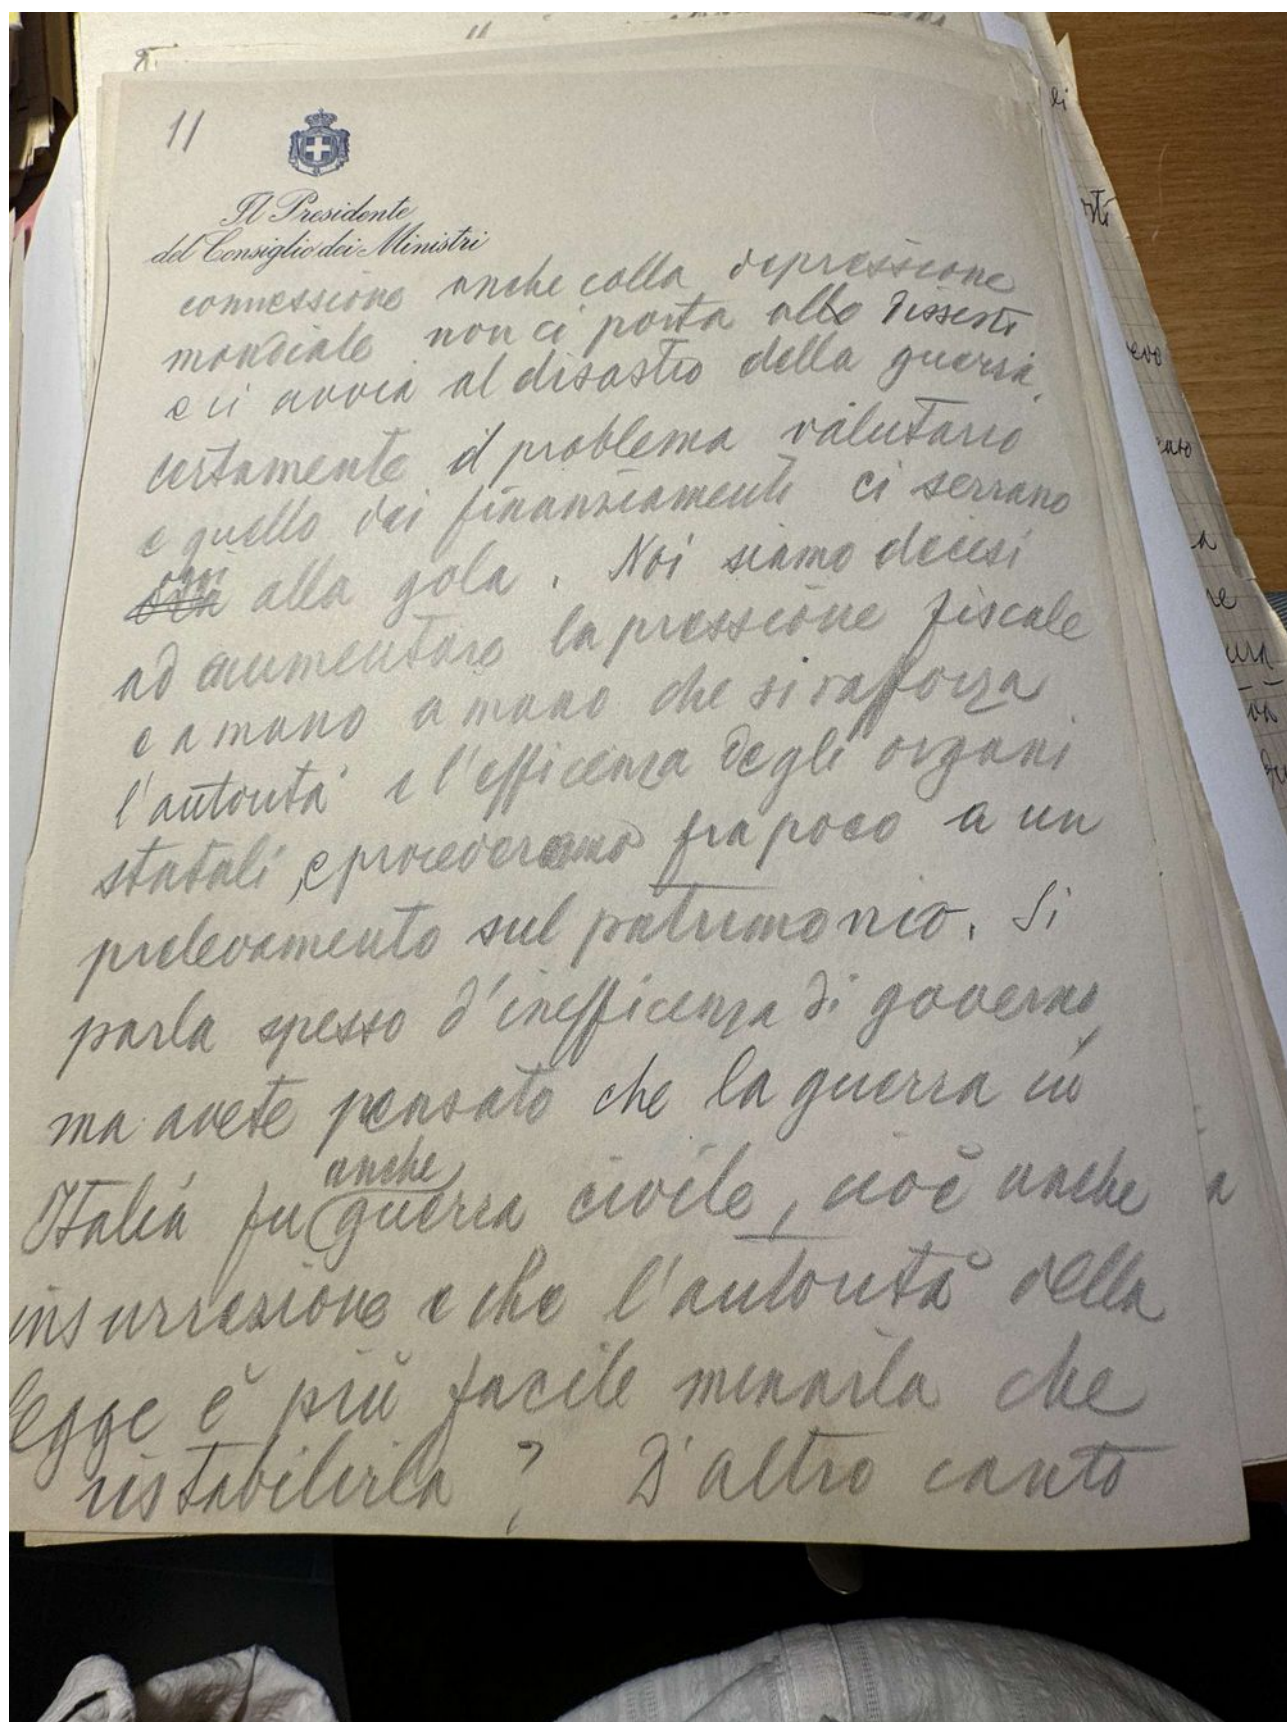 11
Il Presidente
del Consiglio dei Ministri
connessione anche colla depressione
mondiale non ci porta allo dissesto
e ci avvia al disastro della guerra.
certamente il problema valutario
e quello dei finanziamenti ci serrano
oggi alla gola. Noi siamo decisi
ad aumentare la pressione fiscale
e a mano a mano che si rafforza
l'autorità e l'efficenza degli organi
statali, e procederemo fra poco a un
prelevamento sul patrimonio. Si
parla spesso d'inefficenza di governo,
ma avete pensato che la guerra in
Italia fu anche guerra civile, cioè anche
insurrezione e che l'autorità della
legge è più facile menarla che
ristabilirla? D'altro canto